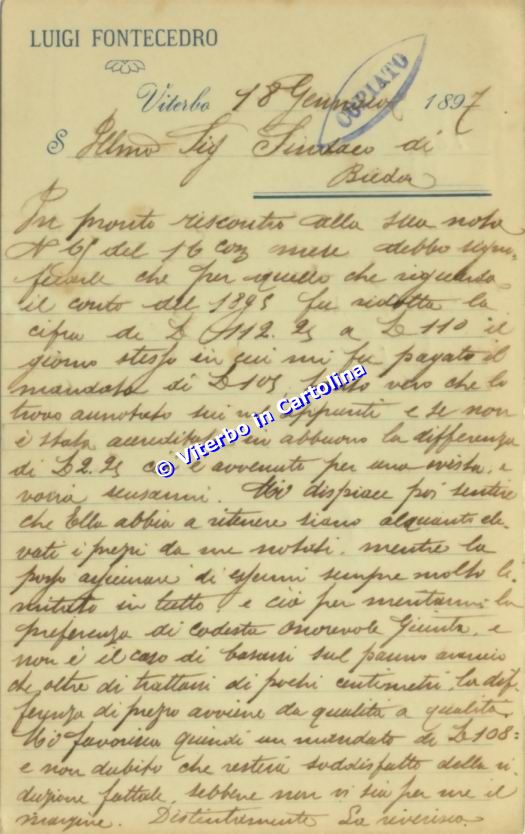 LUIGI FONTECEDRO
COPIATO
Viterbo 18 Gennaio 1897
S Illmo Sig Sindaco di
Bieda
In pronto riscontro alla sua nota
N 65 del 16 cor mese debbo signi-
ficarle che per quello che riguarda
il conto del 1895 fu ridotta la
cifra di L 112.25 a L 110 il
giorno stesso in cui mi fu pagato il
mandato di L 105 tanto vero che lo
trovo annotato sui appunti e se non
è stata accreditata in abbuono la differenza
di L 2.25 ciò è avvenuto per una svista, e
vorrà scusarmi. Mi dispiace poi sentire
che Ella abbia a ritenere siano alquanto ele-
vati i prezzi da me notati, mentre la
posso assicurare di essermi sempre molto li-
mitato in tutto e ciò per meritarmi la
preferenza di codesta Onorevole Giunta, e
non è il caso di basarsi sul panno arancio
che, oltre di trattarsi di pochi centimetri, la dif-
ferenza di prezzo avviene da qualità a qualità
Mi favorisca quindi un mandato di L 108=
e non dubito che resterà soddisfatto della ri-
duzione fattale, sebbene non vi sia per me il
margine. Distintamente La riverisco
© Viterbo in Cartolina